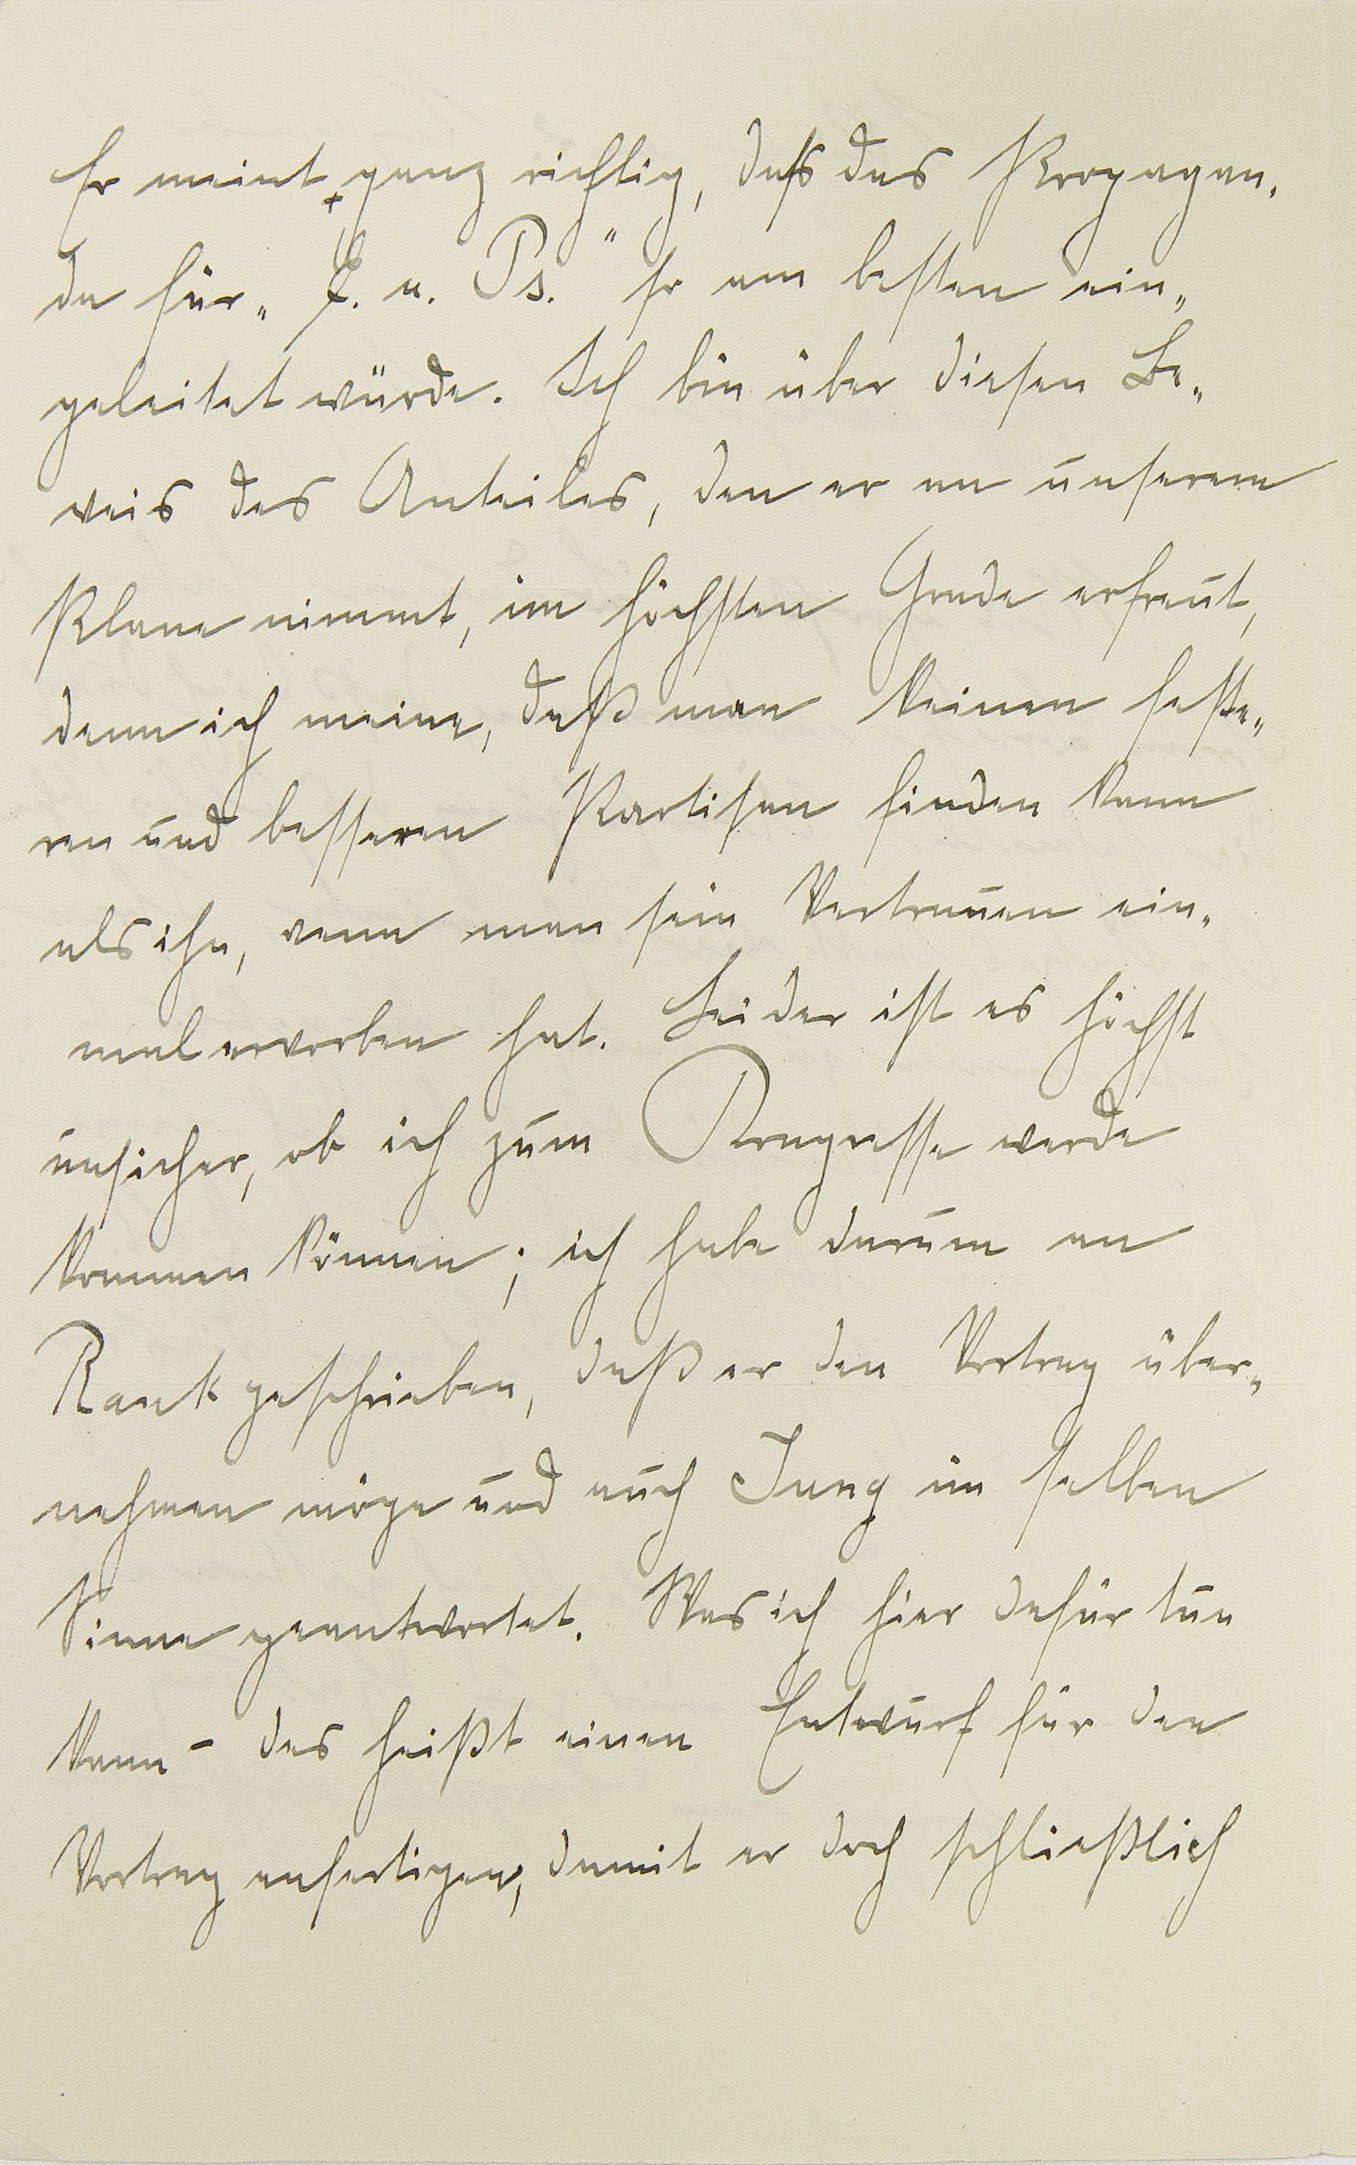 Er meint ganz richtig, daß das Propagan-
da für „E. u. Ps." so am besten ein„
geleitet würde. Ich bin über diesen Be„
weis des Anteiles, den er an unserem
Plane nimmt, im höchsten Grade erfreut,
denn ich meine, daß man keinen feste„
ren und besseren Partisan finden kann
als ihn, wenn man sein Vertrauen ein-
mal erworben hat. Leider ist es höchst
unsicher, ob ich zum Kongresse werde
kommen können; ich habe darum an
Rank geschrieben, daß er den Vortrag über„
nehmen möge und auch Jung im selben
Sinne geantwortet. Was ich hier dafür tun
kann – das heißt einen Entwurf für den
Vortrag anfertigen, damit er doch schließlich